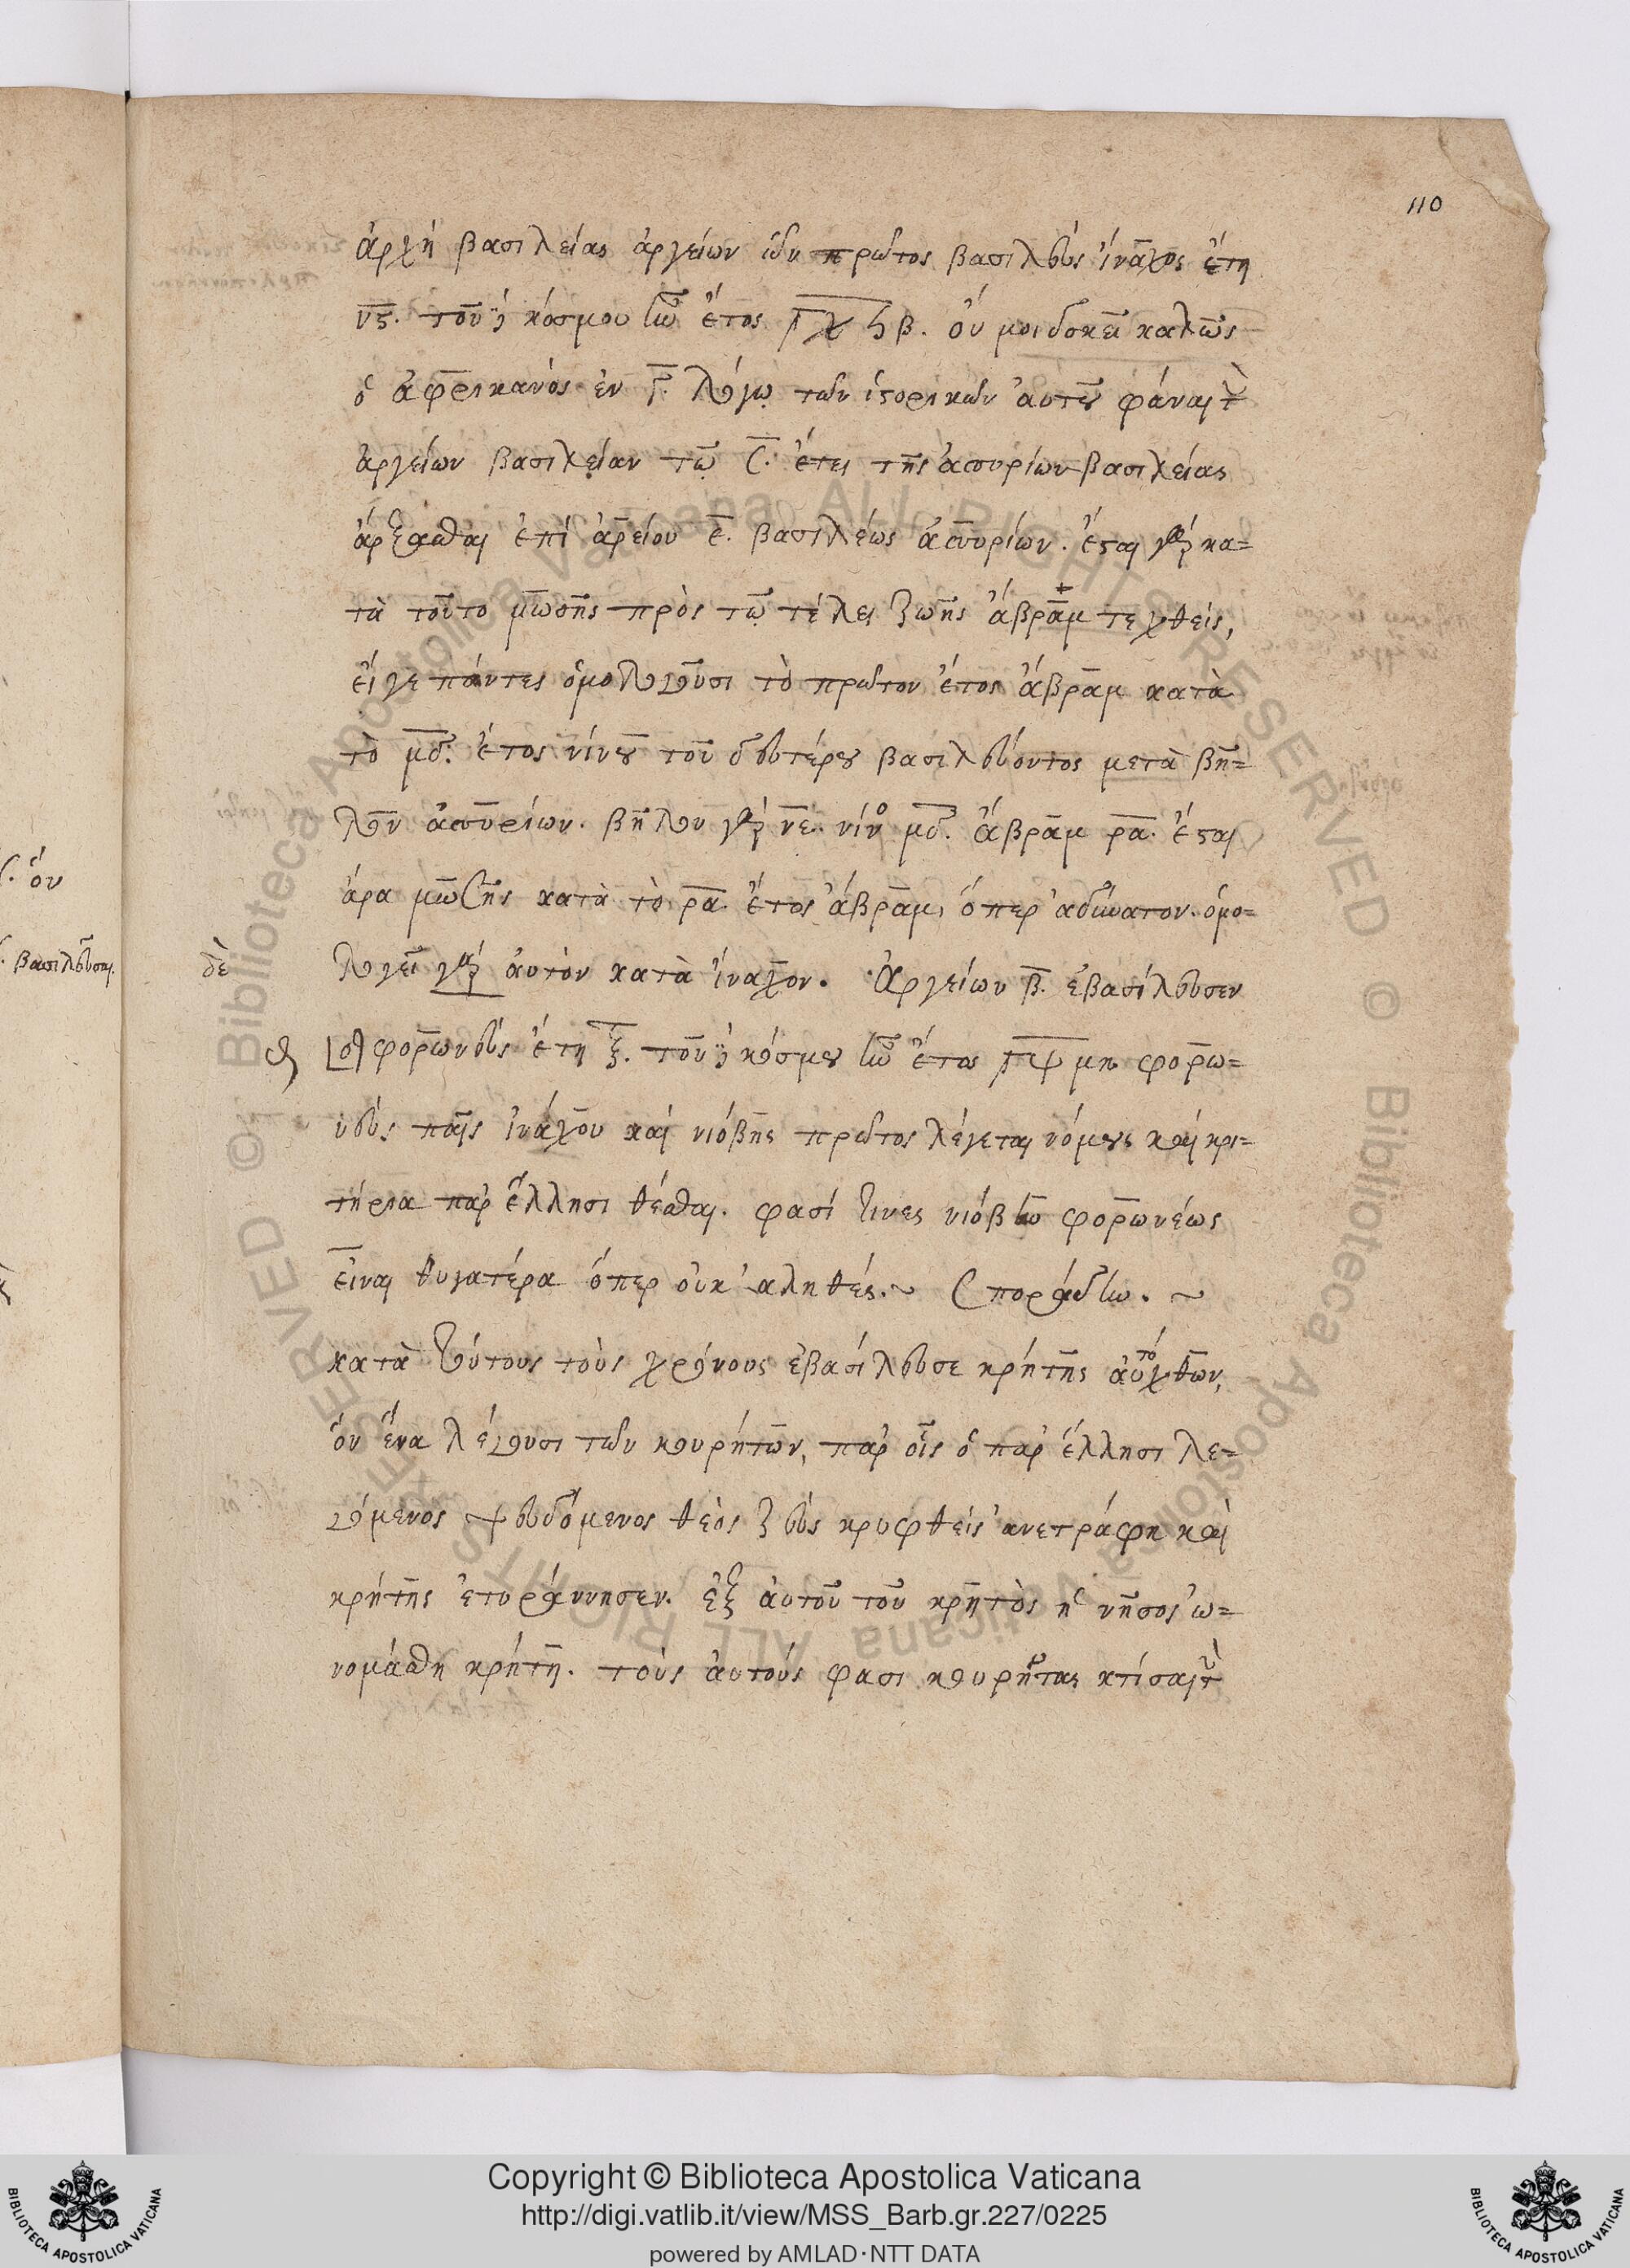 110
ἀρχὴ βασιλείας ἀργείων ὧν πρῶτος βασιλεὺς ἴναχος ἔτη
νς. τοῦ δὲ κόσμου ἦν ἔτος ͵γχϟβ. οὔ μοι δοκεῖ καλῶς
ὁ ἀφρικανὸς ἐν γ. λόγῳ τῶν ἱστορικῶν αὐτοῦ φάναι τὴν
ἀργείων βασιλείαν τῷ ς. ἔτει τῆς ἀσσυρίων βασιλείας
ἄρξασθαι ἐπὶ ἀρείου ε. βασιλέως ἀσσυρίων. ἔσται γὰρ κα=
τὰ τοῦτο μωσῆς πρὸς τῷ τέλει ζωῆς ἀβραὰμ τεχθεὶς,
εἴγε πάντες ὁμολογοῦσι τὸ πρῶτον ἔτος ἀβραὰμ κατὰ
τὸ μδ. ἔτος νίνου τοῦ δευτέρου βασιλεύοντος μετὰ βῆ=
λον ἀσσυρίων. βῆλου γὰρ νε. νίνου μδ. ἀβραὰμ ρα. ἔσται
ἄρα μωσῆς κατὰ τὸ ρα. ἔτος ἀβραὰμ, ὅπερ ἀδύνατον. ὁμο=
δὲ λογεῖ γὰρ αὐτὸν κατὰ ἴναχον. Ἀργείων β. ἐβασίλευσεν
φορωνεὺς ἔτη ξ. τοῦ δὲ κόσμου ἦν ἔτος ͵γψμη φορω=
νεὺς παῖς ἰνάχου καὶ νιόβης πρῶτος λέγεται νόμους καὶ κρι=
τήρια παρ' ἕλλησι θέσθαι. φασί τινες νιόβην φορωνέως
εἶναι θυγατέρα ὅπερ οὐκ ἀληθές. ~ Σποράδην. ~
κατὰ τούτους τοὺς χρόνους ἐβασίλευσε κρήτης αὐτόχθων,
ὃν ἕνα λέγουσι τῶν κουρήτων, παρ' οἷς ὁ παρ' ἕλλησι λε=
γόμενος ψευδόμενος θεὸς ζεὺς κρυφθεὶς ἀνετράφη καὶ
κρήτης ἐτυράννησεν. ἐξ αὐτοῦ τοῦ κρητὸς ἡ νῆσος ὠ=
νομάσθη κρήτη. τοὺς αὐτούς φασι κουρῆτας κτίσαι τὴν
ὃν
βασιλεῦσαι.
Copyright © Biblioteca Apostolica Vaticana
http://digi.vatlib.it/view/MSS_Barb.gr.227/0225
powered by AMLAD·NTT DATA
BIBLIOTECA APOSTOLICA VATICANA
BIBLIOTECA APOSTOLICA VATICANA